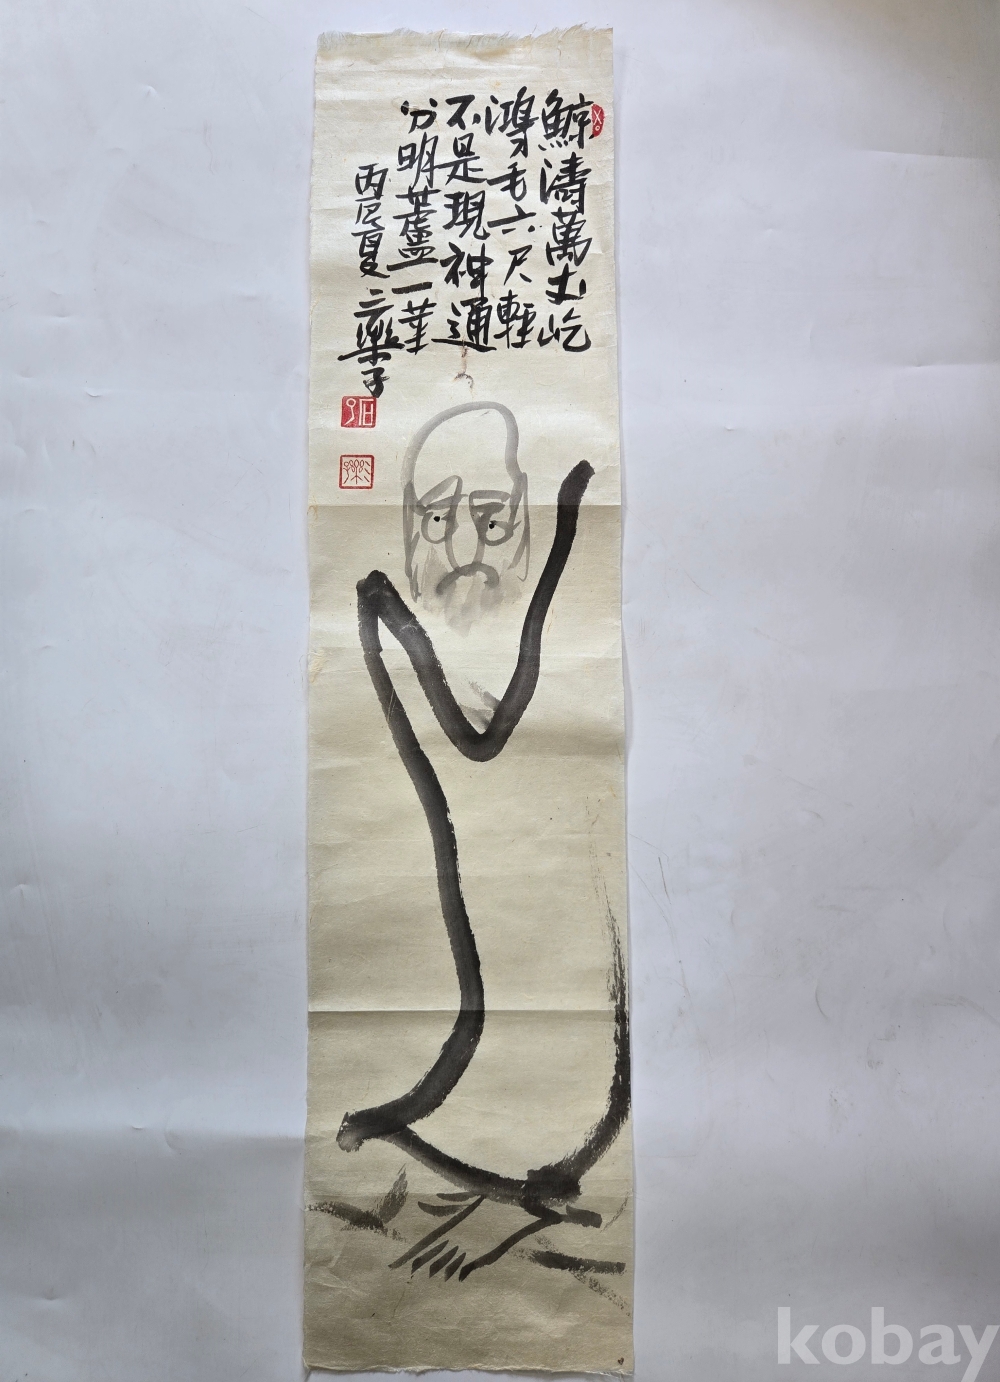 鯨濤萬丈屹
鴻毛六尺輕
不是現神通
分明蘆一莖
丙辰夏 二樂子
kobay